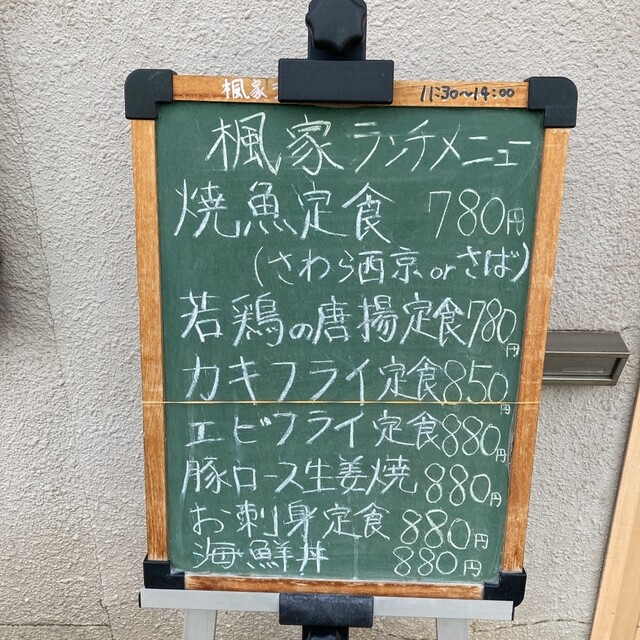 楓家 11:30～14:00
楓家ランチメニュー
焼魚定食 780円
(さわら西京orさば)
若鶏の唐揚定食780円
カキフライ定食850円
エビフライ定食880円
豚ロース生姜焼 880円
お刺身定食 880円
海鮮丼 880円